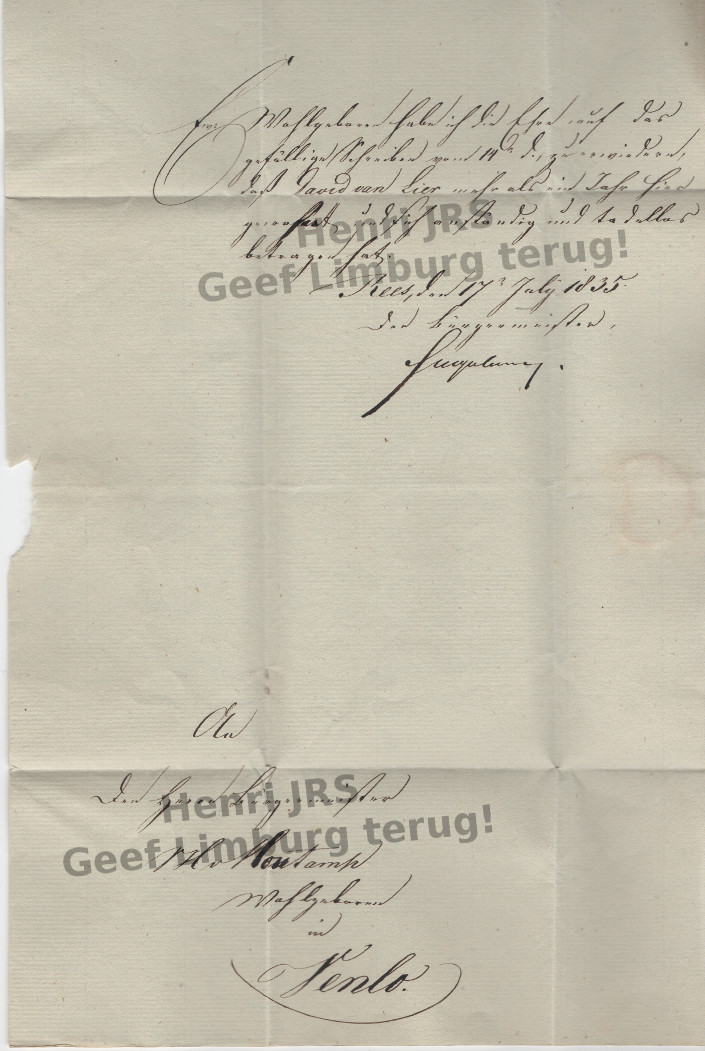 Ewr Wohlgeboren habe ich die Ehre auf das
gefällige Schreiben vom 14t d. zu erwiedern,
daß David van Lier mehr als ein Jahr hier
gewohnt und sich anständig und tadellos
betragen hat.
Henri JRS
Geef Limburg terug!
Rees, den 17t July 1835.
Der Bürgermeister,
An
Den Herrn Bürgermeister
Henri JRS
Geef Limburg terug!
Wohlgeboren
in
Venlo.